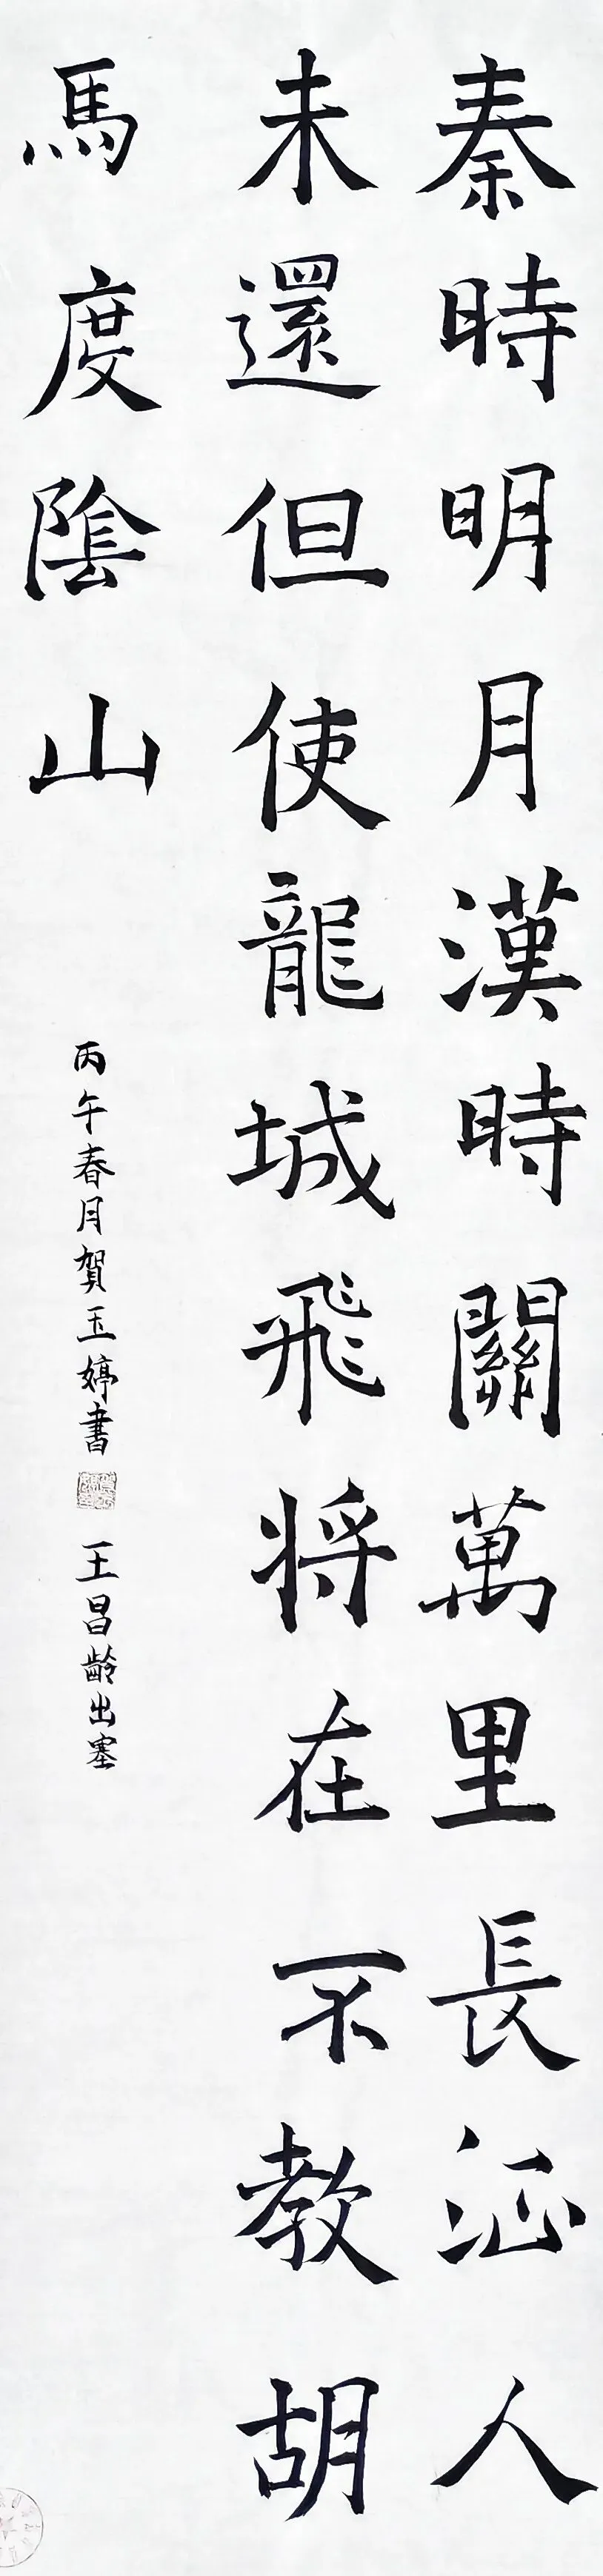 秦時明月漢時關萬里長征人
未還但使龍城飛将在不教胡
馬度陰山
丙午春月賀玉婷書
王昌齡出塞